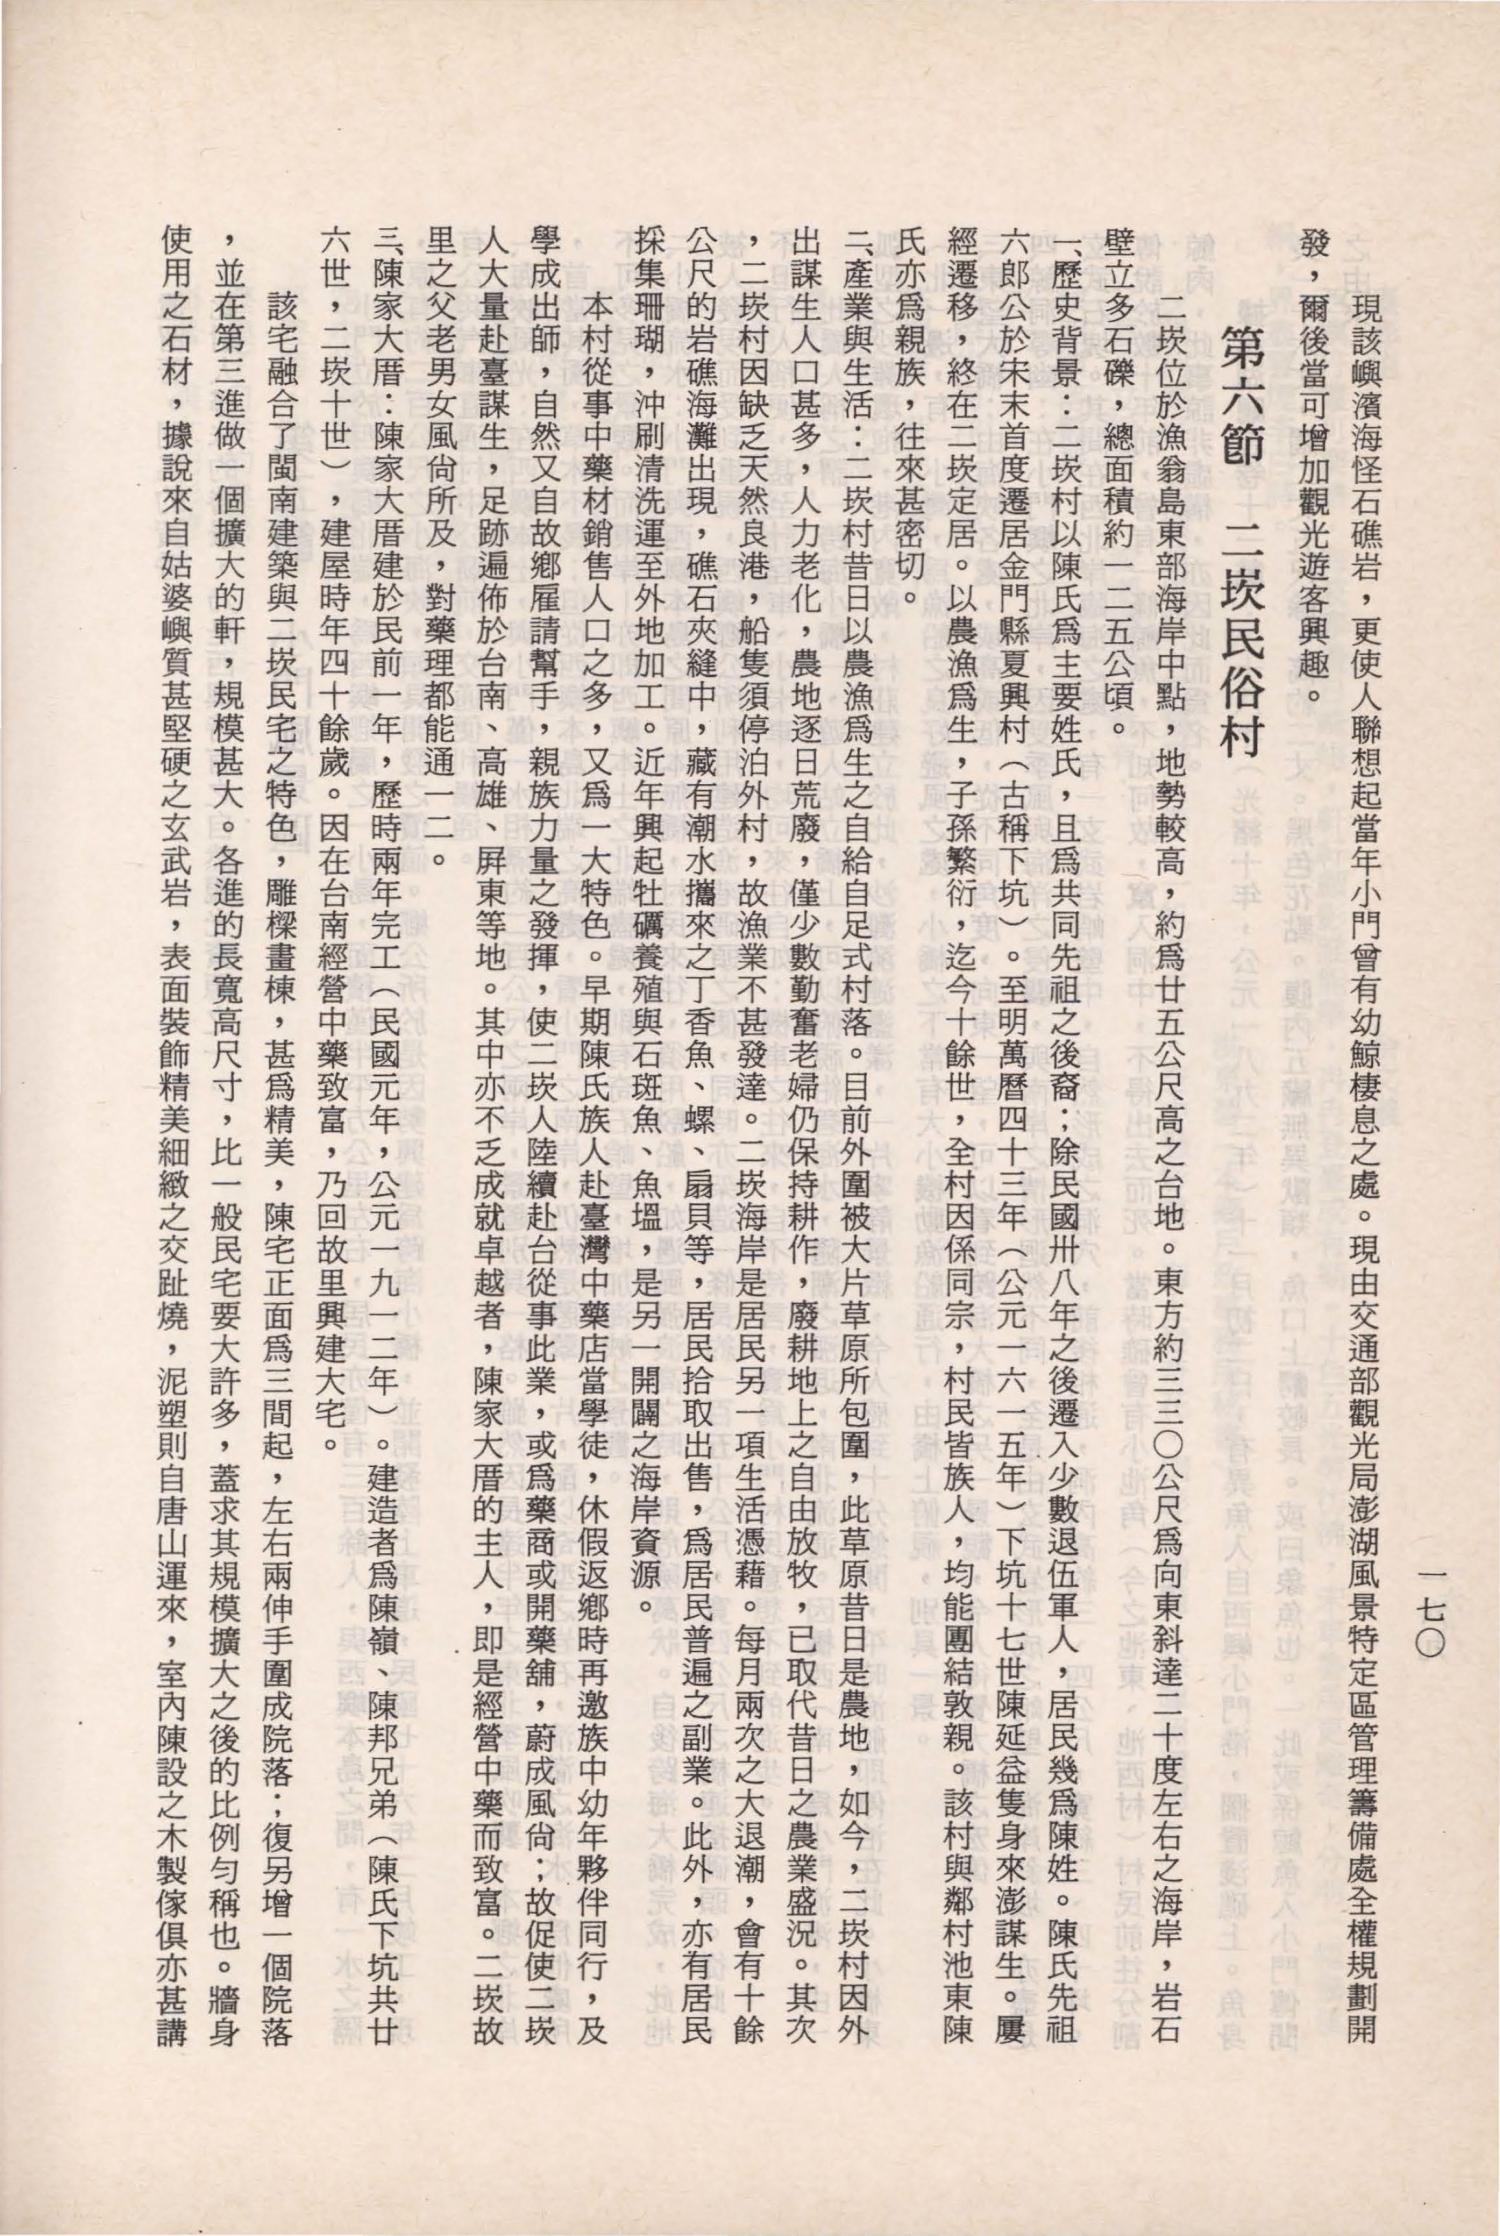 一七〇
現該嶼濱海怪石礁岩，更使人聯想起當年小門曾有幼鯨棲息之處。現由交通部觀光局澎湖風景特定區管理籌備處全權規劃開
發，爾後當可增加觀光遊客興趣。
第六節　二崁民俗村
二崁位於漁翁島東部海岸中點，地勢較高，約爲廿五公尺高之台地。東方約三三〇公尺爲向東斜達二十度左右之海岸，岩石
壁立多石礫，總面積約一二五公頃。
一、歷史背景：二崁村以陳氏爲主要姓氏，且爲共同先祖之後裔；除民國卅八年之後遷入少數退伍軍人，居民幾爲陳姓。陳氏先祖
六郎公於宋末首度遷居金門縣夏興村（古稱下坑）。至明萬曆四十三年（公元一六一五年）下坑十七世陳延益隻身來澎謀生。屢
經遷移，終在二崁定居。以農漁爲生，子孫繁衍，迄今十餘世，全村因係同宗，村民皆族人，均能團結敦親。該村與鄰村池東陳
氏亦爲親族，往來甚密切。
二、產業與生活：二崁村昔日以農漁爲生之自給自足式村落。目前外圍被大片草原所包圍，此草原昔日是農地，如今，二崁村因外
出謀生人口甚多，人力老化，農地逐日荒廢，僅少數勤奮老婦仍保持耕作，廢耕地上之自由放牧，已取代昔日之農業盛況。其次
，二崁村因缺乏天然良港，船隻須停泊外村，故漁業不甚發達。二崁海岸是居民另一項生活憑藉。每月兩次之大退潮，會有十餘
公尺的岩礁海灘出現，礁石夾縫中，藏有潮水攜來之丁香魚、螺、扇貝等，居民拾取出售，爲居民普遍之副業。此外，亦有居民
採集珊瑚，沖刷清洗運至外地加工。近年興起牡礪養殖與石斑魚、魚塭，是另一開闢之海岸資源。
本村從事中藥材銷售人口之多，又爲一大特色。早期陳氏族人赴臺灣中藥店當學徒，休假返鄉時再邀族中幼年夥伴同行，及
學成出師，自然又自故鄉雇請幫手，親族力量之發揮，使二崁人陸續赴台從事此業，或爲藥商或開藥舖，蔚成風尙；故促使二崁
人大量赴臺謀生，足跡遍佈於台南、高雄、屛東等地。其中亦不乏成就卓越者，陳家大厝的主人，即是經營中藥而致富。二崁故
里之父老男女風尙所及，對藥理都能通一二。
三、陳家大厝：陳家大厝建於民前一年，歷時兩年完工（民國元年，公元一九一二年）。建造者爲陳嶺、陳邦兄弟（陳氏下坑共廿
六世，二崁十世），建屋時年四十餘歲。因在台南經營中藥致富，乃回故里興建大宅。
該宅融合了閩南建築與二崁民宅之特色，雕樑畫棟，甚爲精美，陳宅正面爲三間起，左右兩伸手圍成院落；復另增一個院落
，並在第三進做一個擴大的軒，規模甚大。各進的長寬高尺寸，比一般民宅要大許多，蓋求其規模擴大之後的比例勻稱也。牆身
使用之石材，據說來自姑婆嶼質甚堅硬之玄武岩，表面裝飾精美細緻之交趾燒，泥塑則自唐山運來，室內陳設之木製傢俱亦甚講